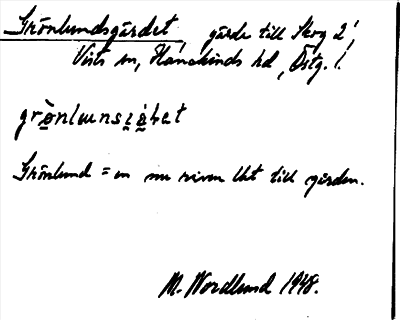 Grönlundsgärdet, gärde till Skog 2,
Vists sn, Hanekinds hd, Östg. l.
grònlunsjǻɫet
Grönlund = en nu riven lht till gården.
M. Nordlund 1948.